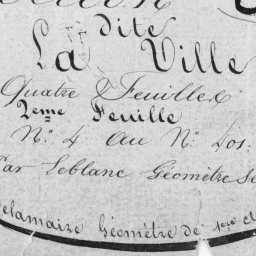 dite
La Ville
Quatre Feuilles
2eme Feuille
N.° 4 au N.° 405.
Par Leblanc Géomètre
Delamaire Géomètre de 1ere